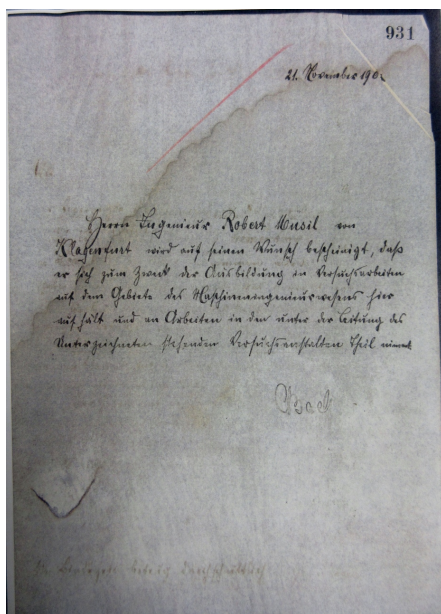 931
21. November 1902
Herrn Ingenieur Robert Musil von
Klagenfurt wird auf seinen Wunsch bescheinigt, daß
er sich zum Zweck der Ausbildung in Versuchsarbeiten
auf dem Gebiete des Maschineningenieurwesens hier
aufhält und an Arbeiten in den unter der Leitung des
Unterzeichneten stehenden Versuchsanstalten Theil nimmt
Bach